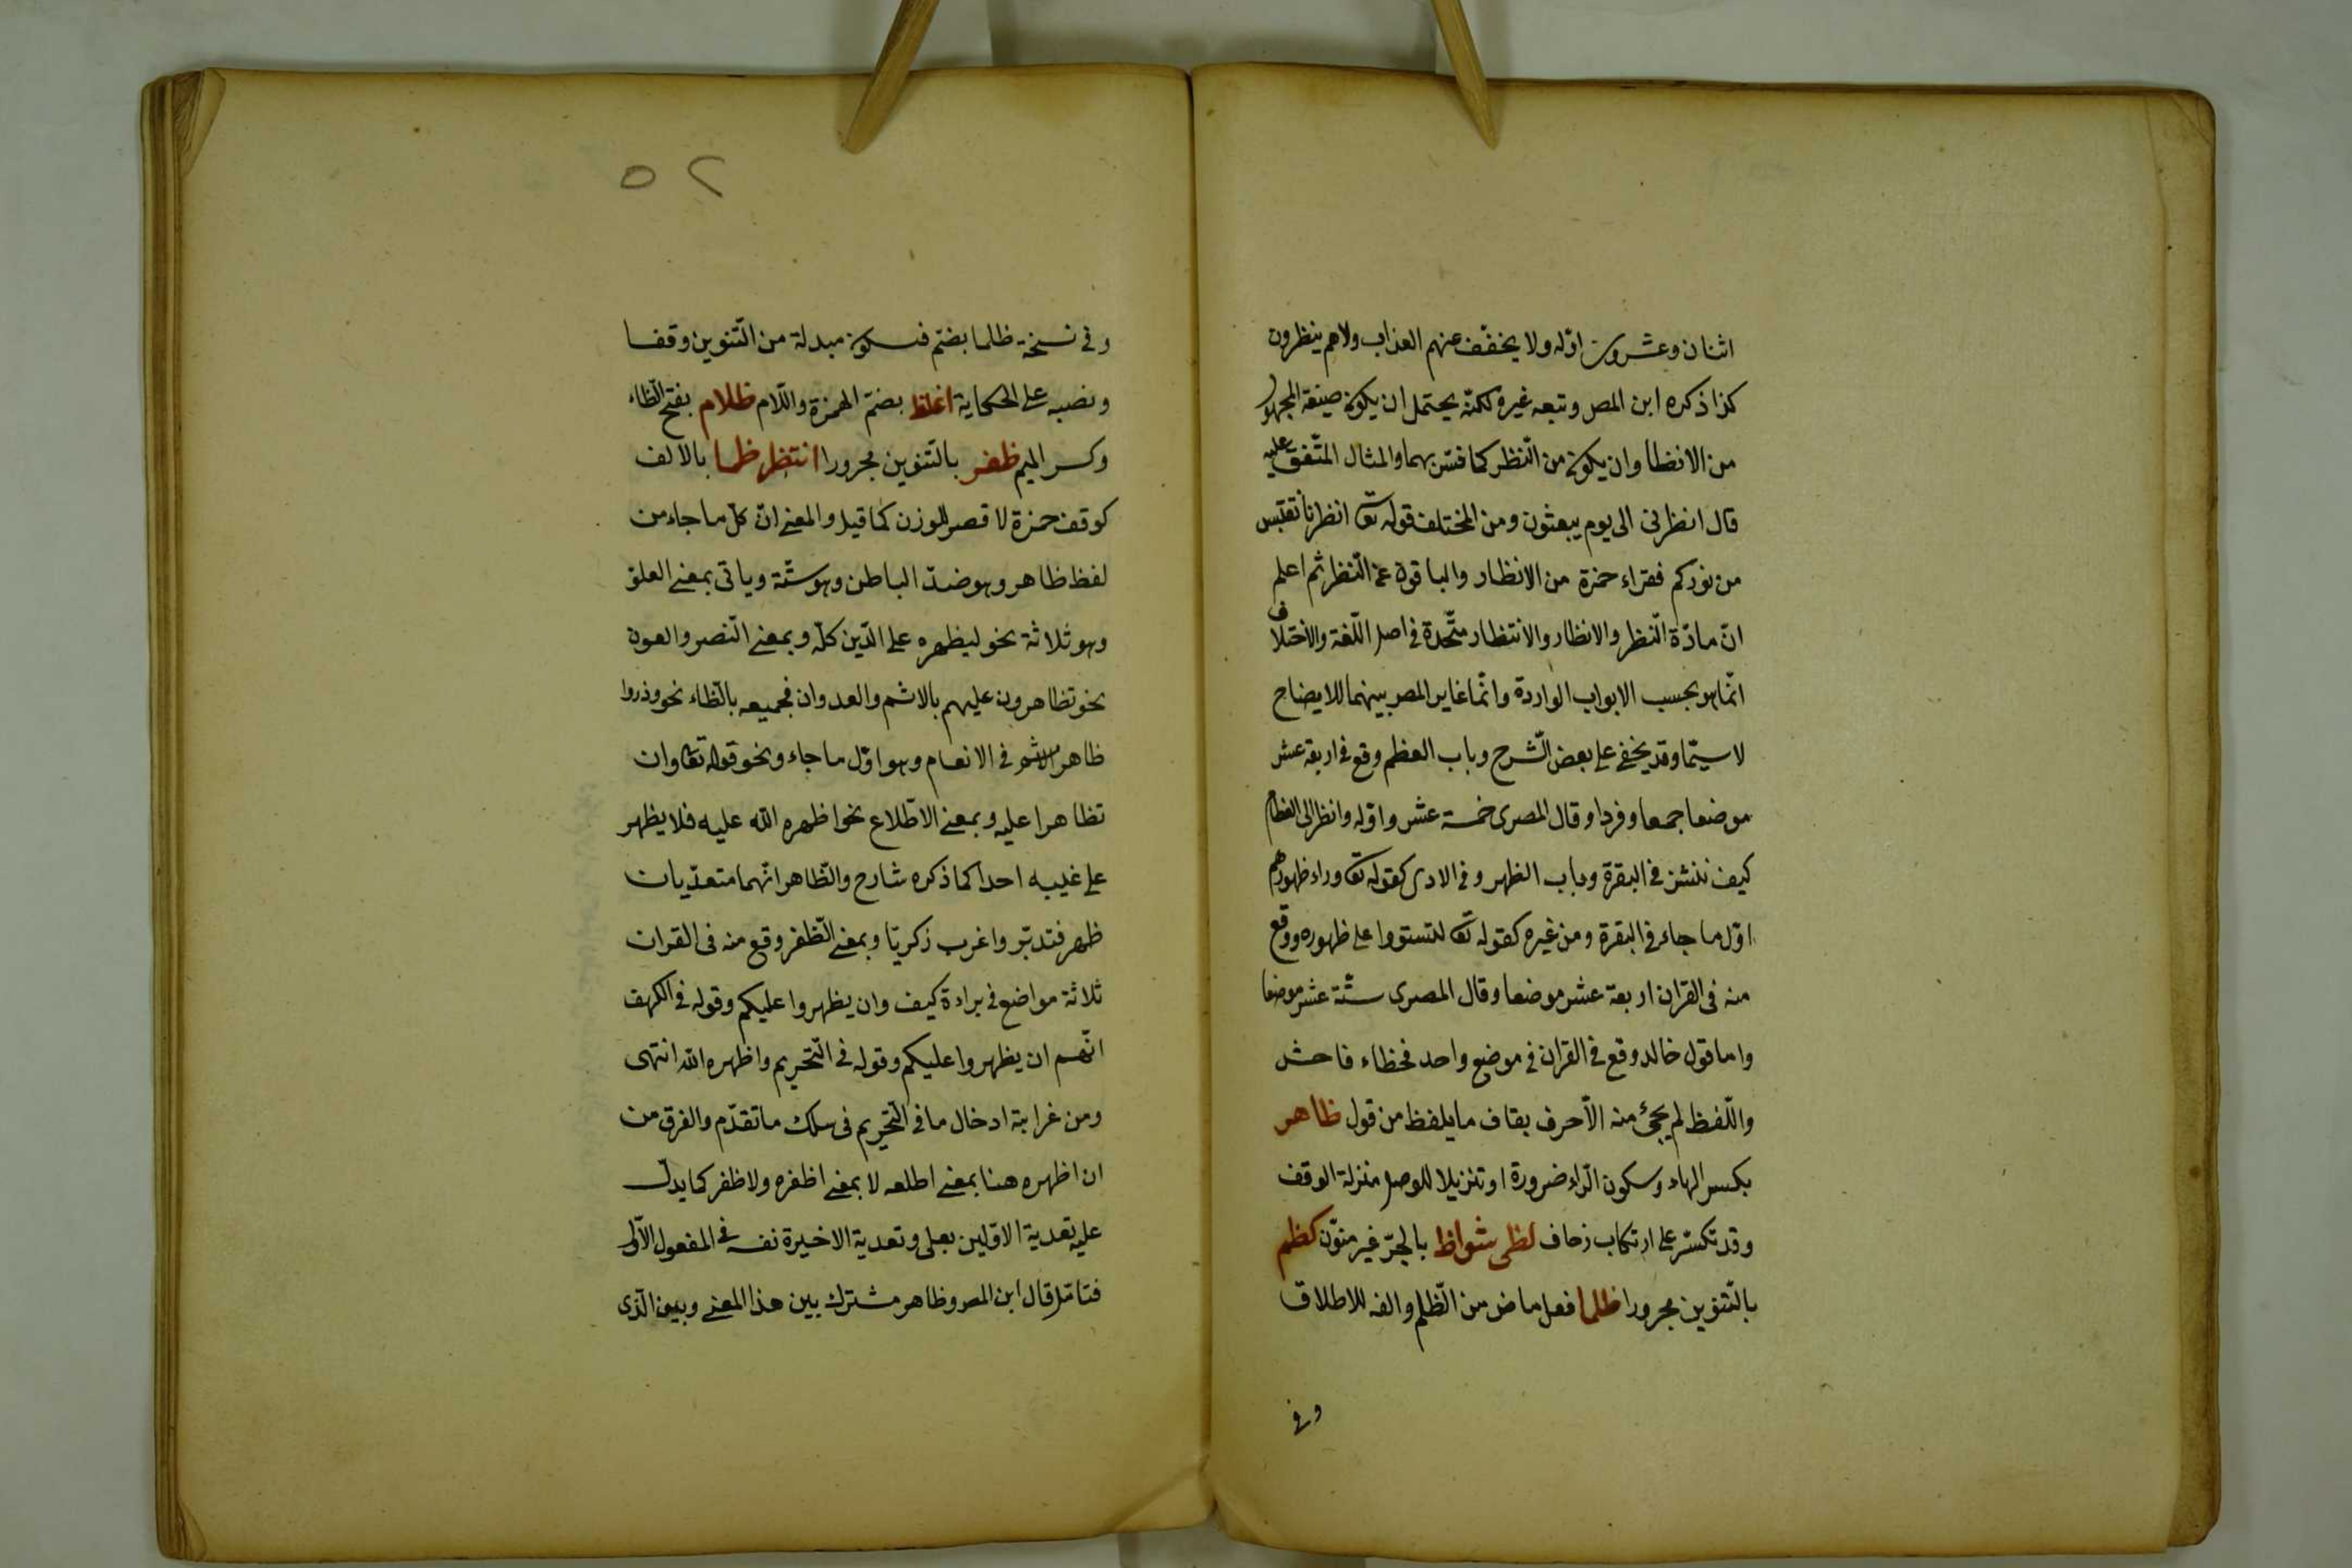 اثنان وعشرون اوّله ولا يخفّف عنهم العذاب ولاهم ينظرون
كذا ذكره ابن المص وتبعه غيره لكنّه يحتمل ان يكون صيغة المجهول
من الانظا وان يكون من النّظر كما فسّر بهما والمثال المتّفق عليه
قال انظرنى الى يوم يبعثون ومن المختلف قوله تعا انظرنا نقتبس
من نوركم فقراء حمزة من الانظار والباقون عن النّظر ثم اعلم
انّ مادّة النّظر والانظار والانتظار متّحدة فى اصل اللّغة والاختلاف
انّما هو بحسب الابواب الواردة وانّما غاير المصر بينهما للايضاح
لا سيّما وقد يخفى على بعض الشّرح وباب العظم وقع فى اربعة عشر
موضعا جمعا وفردا وقال المصرى خمسة عشر واوّله وانظر الى العظام
كيف ننشز فى البقرة وباب الظهر وفى الادمى كقوله تعا وراء ظهورهم
اوّل ما جاء فى البقرة ومن غيره كقوله تعا لتستووا على ظهوره ووقع
منه فى القران اربعة عشر موضعا وقال المصرى ستّة عشر موضعا
واما قول خالد وقع فى القران فى موضع واحد فخطاء فاحش
واللّفظ لم يجئ منه الّا حرف بقاف ما يلفظ من قول ظاهر
بكسر الهاء وسكون الرّاء ضرورة او تنزيلا للوصل منزلة الوقف
وقد تكسر على ارتكاب زحاف لظى شواظ بالجرّ غير منوّن كظم
بالتّنوين مجرورا ظلما فعل ماض من الظّلم والفه للاطلاق
وفى
٥٢
وفى نسخة ظلما بضمّ فسكون مبدلة من التّنوين وقفا
ونصبه على الحكاية اغلظ بضمّ الهمزة واللّام ظلام بفتح الظّاء
وكسر الميم ظفر بالتّنوين مجرورا انتظر ظما بالالف
كوقف حمزة لا قصر للوزن كما قيل والمعنى انّ كلّ ما جاء من
لفظ ظاهر وهو ضدّ الباطن وهو ستّة وياتى بمعنى العلو
وهو ثلاثة نحو ليظهره على الدّين كلّه وبمعنى النّصر والعون
نحو تظاهرون عليهم بالاثم والعدوان فجميعه بالظّاء نحو وذروا
ظاهر الاثم فى الانعام وهو اوّل ما جاء ونحو قوله تعا وان
تظاهرا عليه وبمعنى الاطّلاع نحو اظهره الله عليه فلا يظهر
على غيبه احدا كما ذكره شارح والظّاهر انّهما متعدّيان
ظهر فتدبّر واغرب زكريّا وبمعنى الظّفر وقع منه فى القران
ثلاثة مواضع فى براءة كيف وان يظهروا عليكم وقوله فى الكهف
انّهم ان يظهروا عليكم وقوله فى التّحريم واظهره الله انتهى
ومن غرابة ادخال ما فى التّحريم فى سلك ما تقدّم والفرق من
ان اظهره هنا بمعنى اطلعه لا بمعنى اظفره ولا ظفر كما يدلّ
عليه تعدية الاوّلين بعلى وتعدية الاخيرة نفسه فى المفعول الاوّل
فتامّل قال ابن المصر وظاهر مشترك بين هذا المعنى وبين الّذى